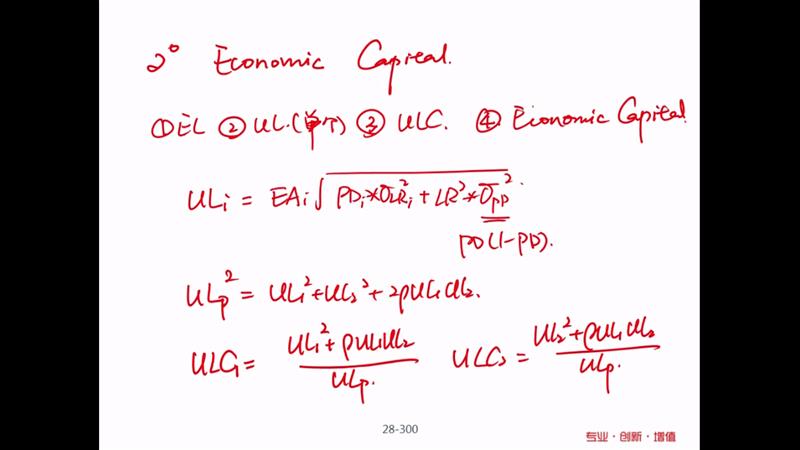 2° Economic Capital.
①EL ②UL.(单个) ③ ULC. ④ Economic Capital
ULi = EAi√(PDi*σLRi² + LR²*σPD²)
PD(1-PD).
ULp² = UL₁²+UL₂²+2ρUL₁UL₂.
ULC₁ = (UL₁²+ρUL₁UL₂)/ULp. ULC₂ = (UL₂²+ρUL₁UL₂)/ULp.
28-300
专业·创新·增值